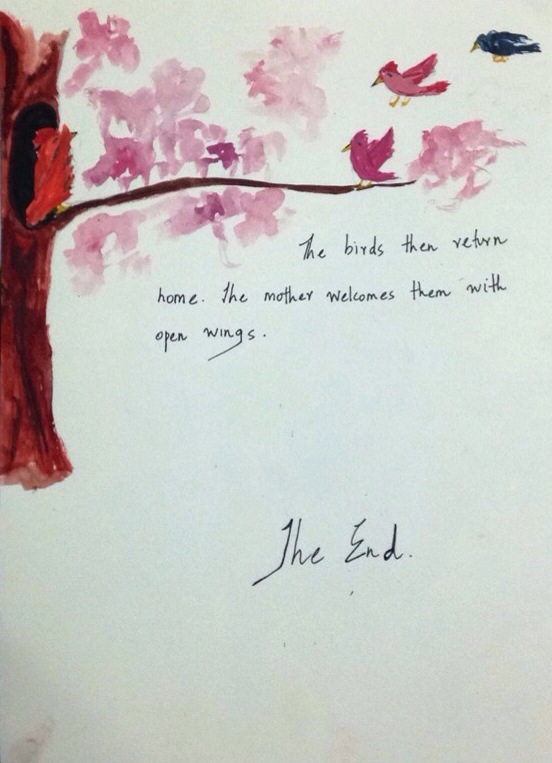 The birds then return
home. The mother welcomes them with
open wings.
The End.